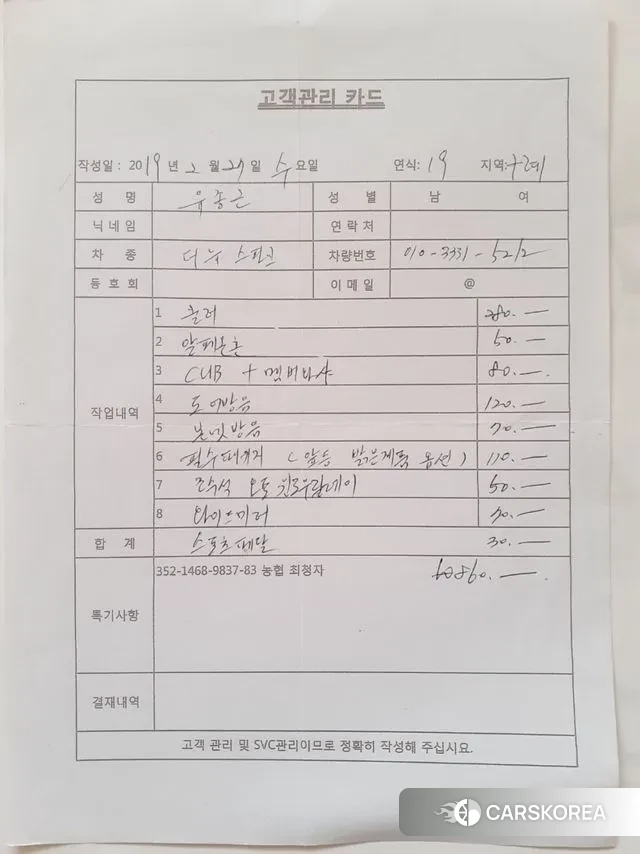 고객관리 카드
작성일 : 2019 년 2 월 27 일 수 요일 연식: 19 지역:
성 명 유종근 성 별 남 여
닉네임 연락처
차 종 더 뉴 스파크 차량번호 010-3331-5212
동호회 이메일 @
작업내역
1 280.—
2 알페온혼 50.—
3 CUB + 멤버바 4 80.—
4 도어방음 120.—
5 본넷방음 70.—
6 필수패키지 ( 옵션 ) 110.—
7 조수석 오토 50.—
8 와이드미러
합 계 스포츠페달 30.—
352-1468-9837-83 농협 최청자 860.—.
특기사항
결재내역
고객 관리 및 SVC관리이므로 정확히 작성해 주십시요.
CARSKOREA